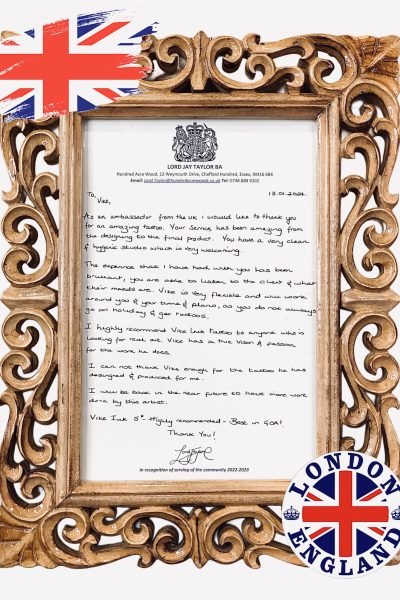 LORD JAY TAYLOR BA
Hundred Acre Wood, 13 Weymouth Drive, Chafford Hundred, Essex, RM16 6BX
Email: Lord.Taylor@hundredacrewoods.co.uk Tel: 0736 888 0202
To, 13.01.2024.
Vixe,
As an ambassador from the UK I would like to thank you
for an amazing tattoo. Your service has been amazing from
the designing to the final product. You have a very clean
& hygenic studio which is very welcoming.
The experince that I have had with you has been
brilliant, you are able to listen to the client & what
their needs are. Vixe is very flexible and will work
around you & your time & plans, as you do not always
go on holiday & get tattoos.
I highly recommend Vixe Ink tattoo to anyone who is
looking for real art. Vixe has a true vison & passion
for the work he does.
I can not thank Vixe enough for the tattoo he has
designed & produced for me.
I will be back in the near future to have more work
done by this artist.
Vixe Ink 5* Highly recommended - Best in GOA!
Thank You!
In recognition of serving of the community 2022-2023
LONDON
ENGLAND